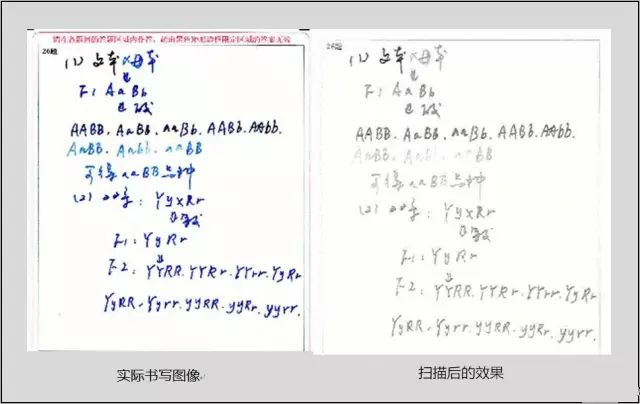 请在各题目的答题区域内作答，超出黑色矩形边框限定区域的答案无效
26题
(1) 父本×母本
↓
F1 AaBb
AABB. AaBb. aaBb. AABb. AAbb.
AaBB. Aabb. aaBB
可得aaBB品种
(2) YyxRr
F1: YyRr
F2: YYRR. YYRr. YYrr. YyRr
YyRR. Yyrr. yyRR. yyRr. yyrr.
实际书写图像
26题
(1) 父本×母本
↓
F1 AaBb
AABB. AaBb. aaBb. AABb. AAbb.
AaBB. Aabb. aaBB
可得aaBB品种
(2) YyxRr
F1: YyRr
F2: YYRR. YYRr. YYrr. YyRr
YyRR. Yyrr. yyRR. yyRr. yyrr.
扫描后的效果